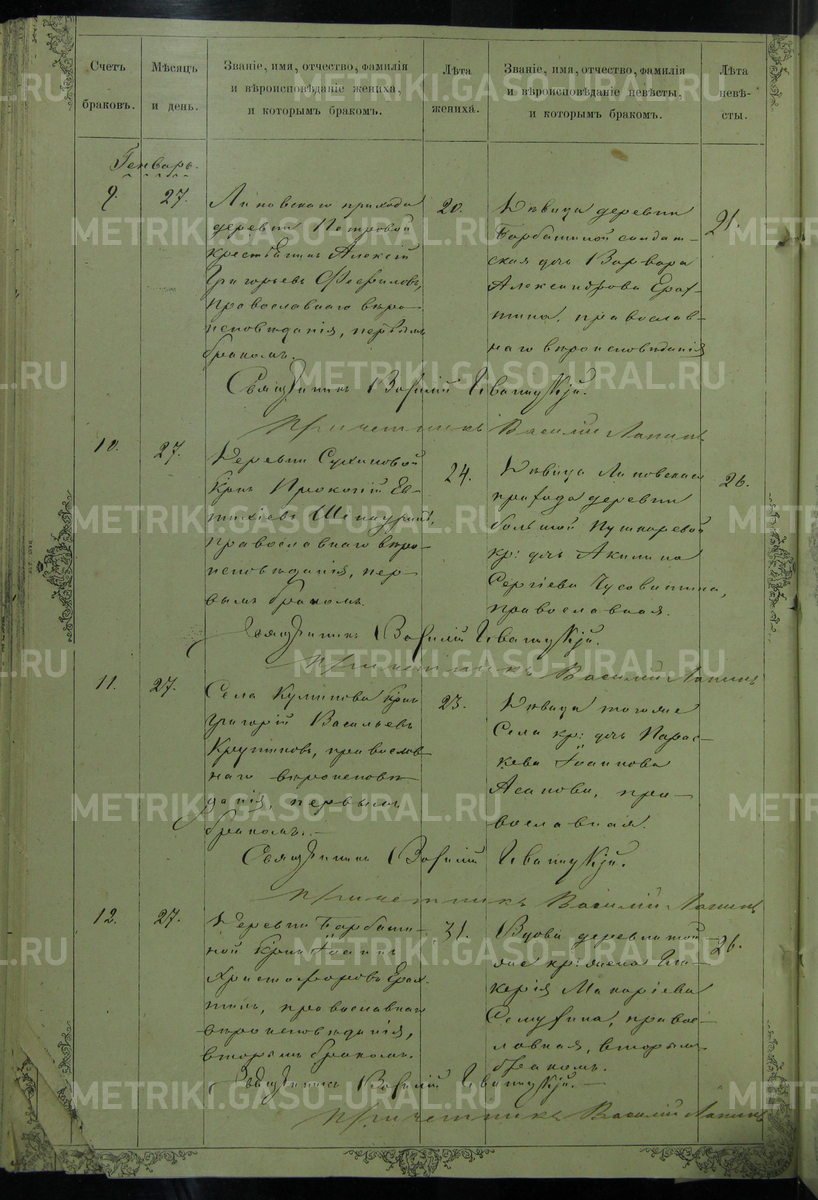 Счетъ браковъ.
Мѣсяцъ и день.
Званіе, имя, отчество, фамилія
и вѣроисповѣданіе жениха,
и которымъ бракомъ.
Лѣта
жениха.
Званіе, имя, отчество, фамилія
и вѣроисповѣданіе невѣсты,
и которымъ бракомъ.
Лѣта
невѣ-
сты.
Генварь.
9.
27.
Липовскаго прихода
деревни Петровой
крестьянинъ Алексій
Григорьевъ Феофиловъ,
православнаго вѣро-
исповѣданія, первымъ
бракомъ.
20.
Дѣвица деревни
Борбашиной солдат-
ская дочь Варвара
Александрова
православ-
наго вѣроисповѣданія
21.
Священникъ Василій
Причетникъ Василій Лапинъ
10.
27.
Деревни Сухановой
Крнъ Прокопій Ев-
тихіевъ
православнаго вѣро-
исповѣданія, пер-
вымъ бракомъ.
24.
Дѣвица Липовскаго
прихода деревни
большой Пушкаревой
кр: дочь Акилина
Сергіева Чусовитина,
православная.
26.
Священникъ Василій
Причетникъ Василій Лапинъ
11.
27.
Села
Григорій Васильевъ
православ-
наго вѣроисповѣ-
данія, первымъ
бракомъ.
23.
Дѣвица тогоже
Села кр: дочь Парас-
кева Іоаннова
пра-
вославная.
Священникъ Василій
Причетникъ Василій Лапинъ
12.
27.
Деревни
Крнъ Іоаннъ
Христофоровъ
православнаго
вѣроисповѣданія,
вторымъ бракомъ.
31.
Вдова деревни той
же
Макаріева
правос-
лавная, вторымъ
бракомъ.
26.
Священникъ Василій
Причетникъ Василій Лапинъ
METRIKI.GASO-URAL.RU